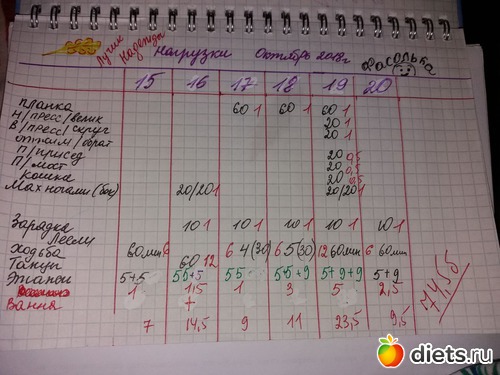 Лучик Надежды Нагрузки Октябрь 2018г Фасолька
15 16 17 18 19 20
планка 60 1 60 1 60 1
Н/пресс/велик 20 1
В/пресс/скруг 20 1
отжим/обрат
п/присед 20 0,5
П/мост 20 0,5
Кошка 20 0,5
Мах ногами (бок) 20/20 1 20/20 1
Зарядка 10 1 10 1 10 1 10 1 10 1
Лесли
Ходьба 60 мин 6 6 4 (30) 6 5 (30) 12 60 мин 6 60 мин
Танцы 60 12
Этажи 5+5 55+5 55 55+9 5+9+9 5+9
1 1,5 1 3 5 2,5
Ванна +
7 14,5 9 11 23,5 9,5
74,55
diets.ru